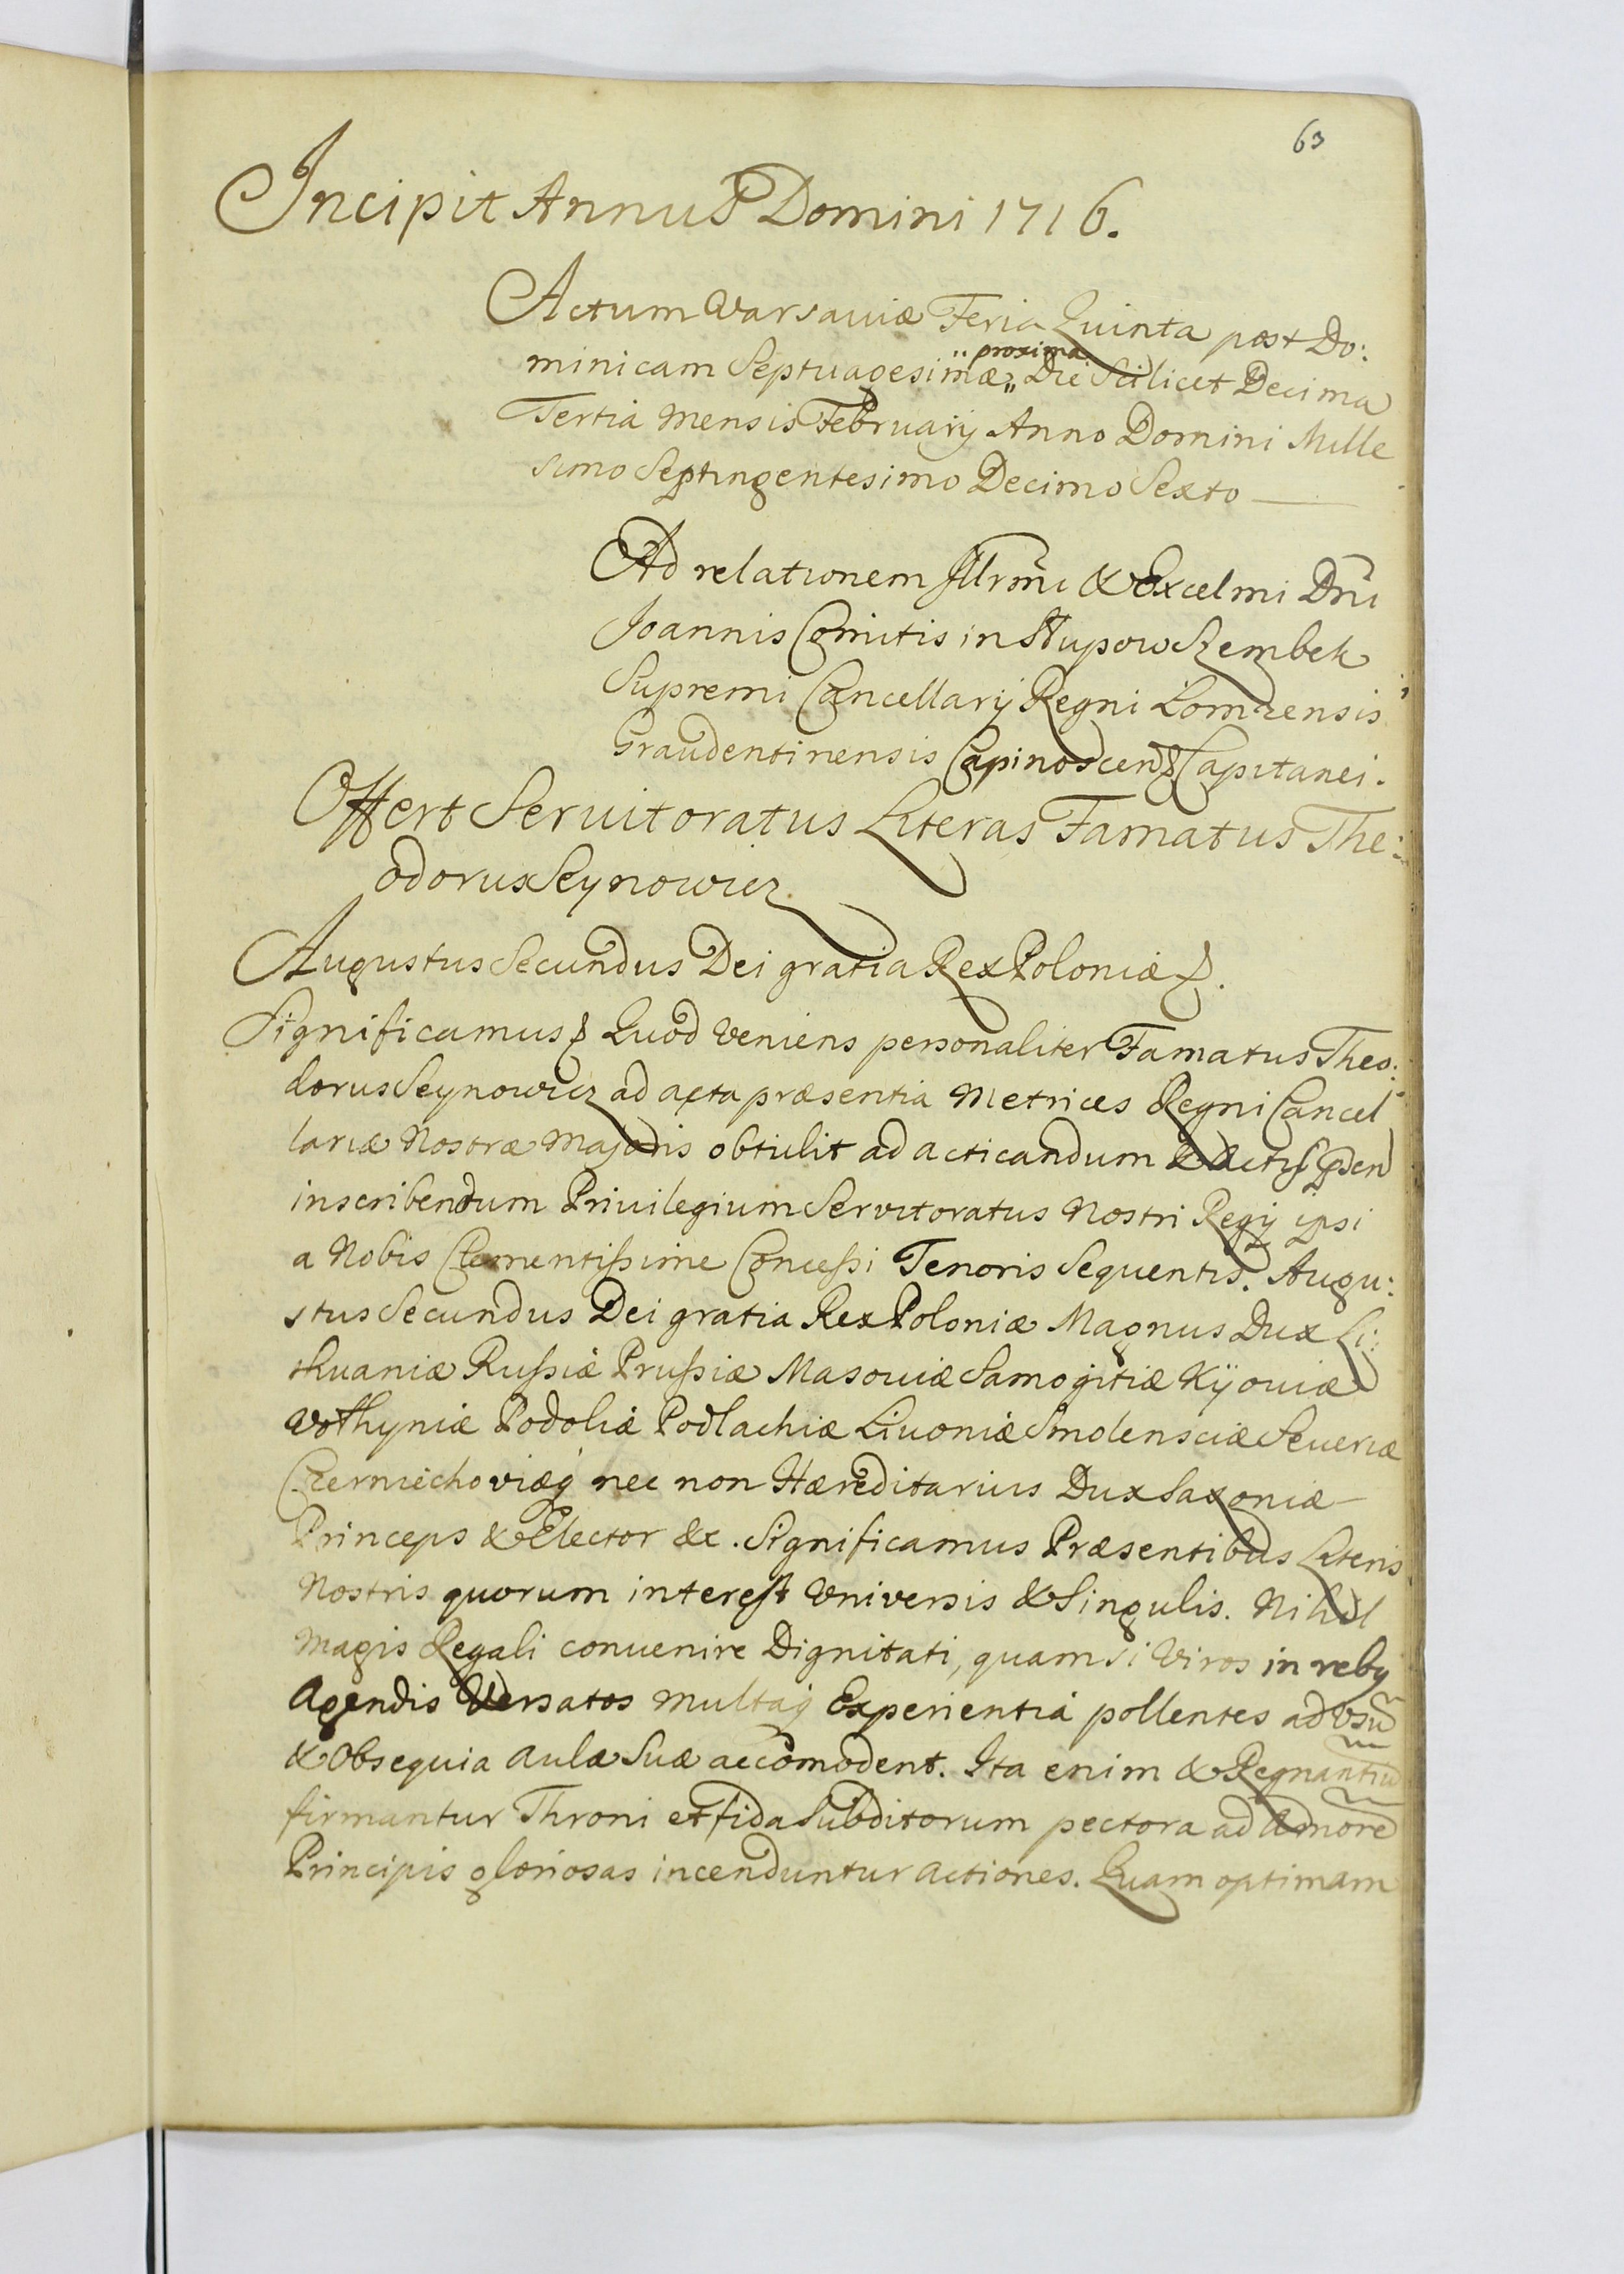 63
Incipit Annus Domini 1716.
Actum Varsaviæ Feria Quinta post Do:
minicam Septuagesimæ „proxima„ Die Scilicet Decima
Tertia Mensis Februarij Anno Domini Mille
simo Septingentesimo Decimo Sexto
Ad relationem Illrmi & Excelmi Dni
Joannis Comitis in Słupow Szembek
Supremi Cancellarij Regni Lomzensis
Graudentinensis Capinoscen & Capitanei.
Offert Servitoratus Literas Famatus The:
odorus Seynowicz
Augustus Secundus Dei gratia Rex Poloniæ &.
Significamus & Quod Veniens personaliter Famatus Theo:
dorus Seynowicz ad acta præsentia Metrices Regni Cancel
lariæ Nostræ Majoris obtulit ad acticandum & Actis pñden
inscribendum Privilegium Servitoratus Nostri Regij ipsi
a Nobis Clementissime Concessi Tenoris Sequentis. Augu:
stus Secundus Dei gratia Rex Poloniæ Magnus Dux Li:
thuaniæ Russiæ Prussiæ Masoviæ Samogitiæ Kijoviæ
Volhyniæ Podoliæ Podlachiæ Livoniæ Smolensciæ Severiæ
Czerniechoviæq nec non Hæreditarius Dux Saxoniæ
Princeps & Elector &c. Significamus Præsentibus Literis
Nostris quorum interest Vniversis & Singulis. Nihil
magis Regali convenire Dignitati, quam si Viros in rebq
Agendis Versatos multaq Experientiâ pollentes ad Vsũ
& Obsequia Aulæ Suæ accõmodent. Ita enim & Regnantiũ
firmantur Throni et fida Subditorum pectora ad Amorẽ
Principis gloriosas incenduntur actiones. Quam optimam